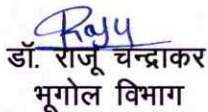 Raju
डॉ. राजू चन्द्राकर
भूगोल विभाग